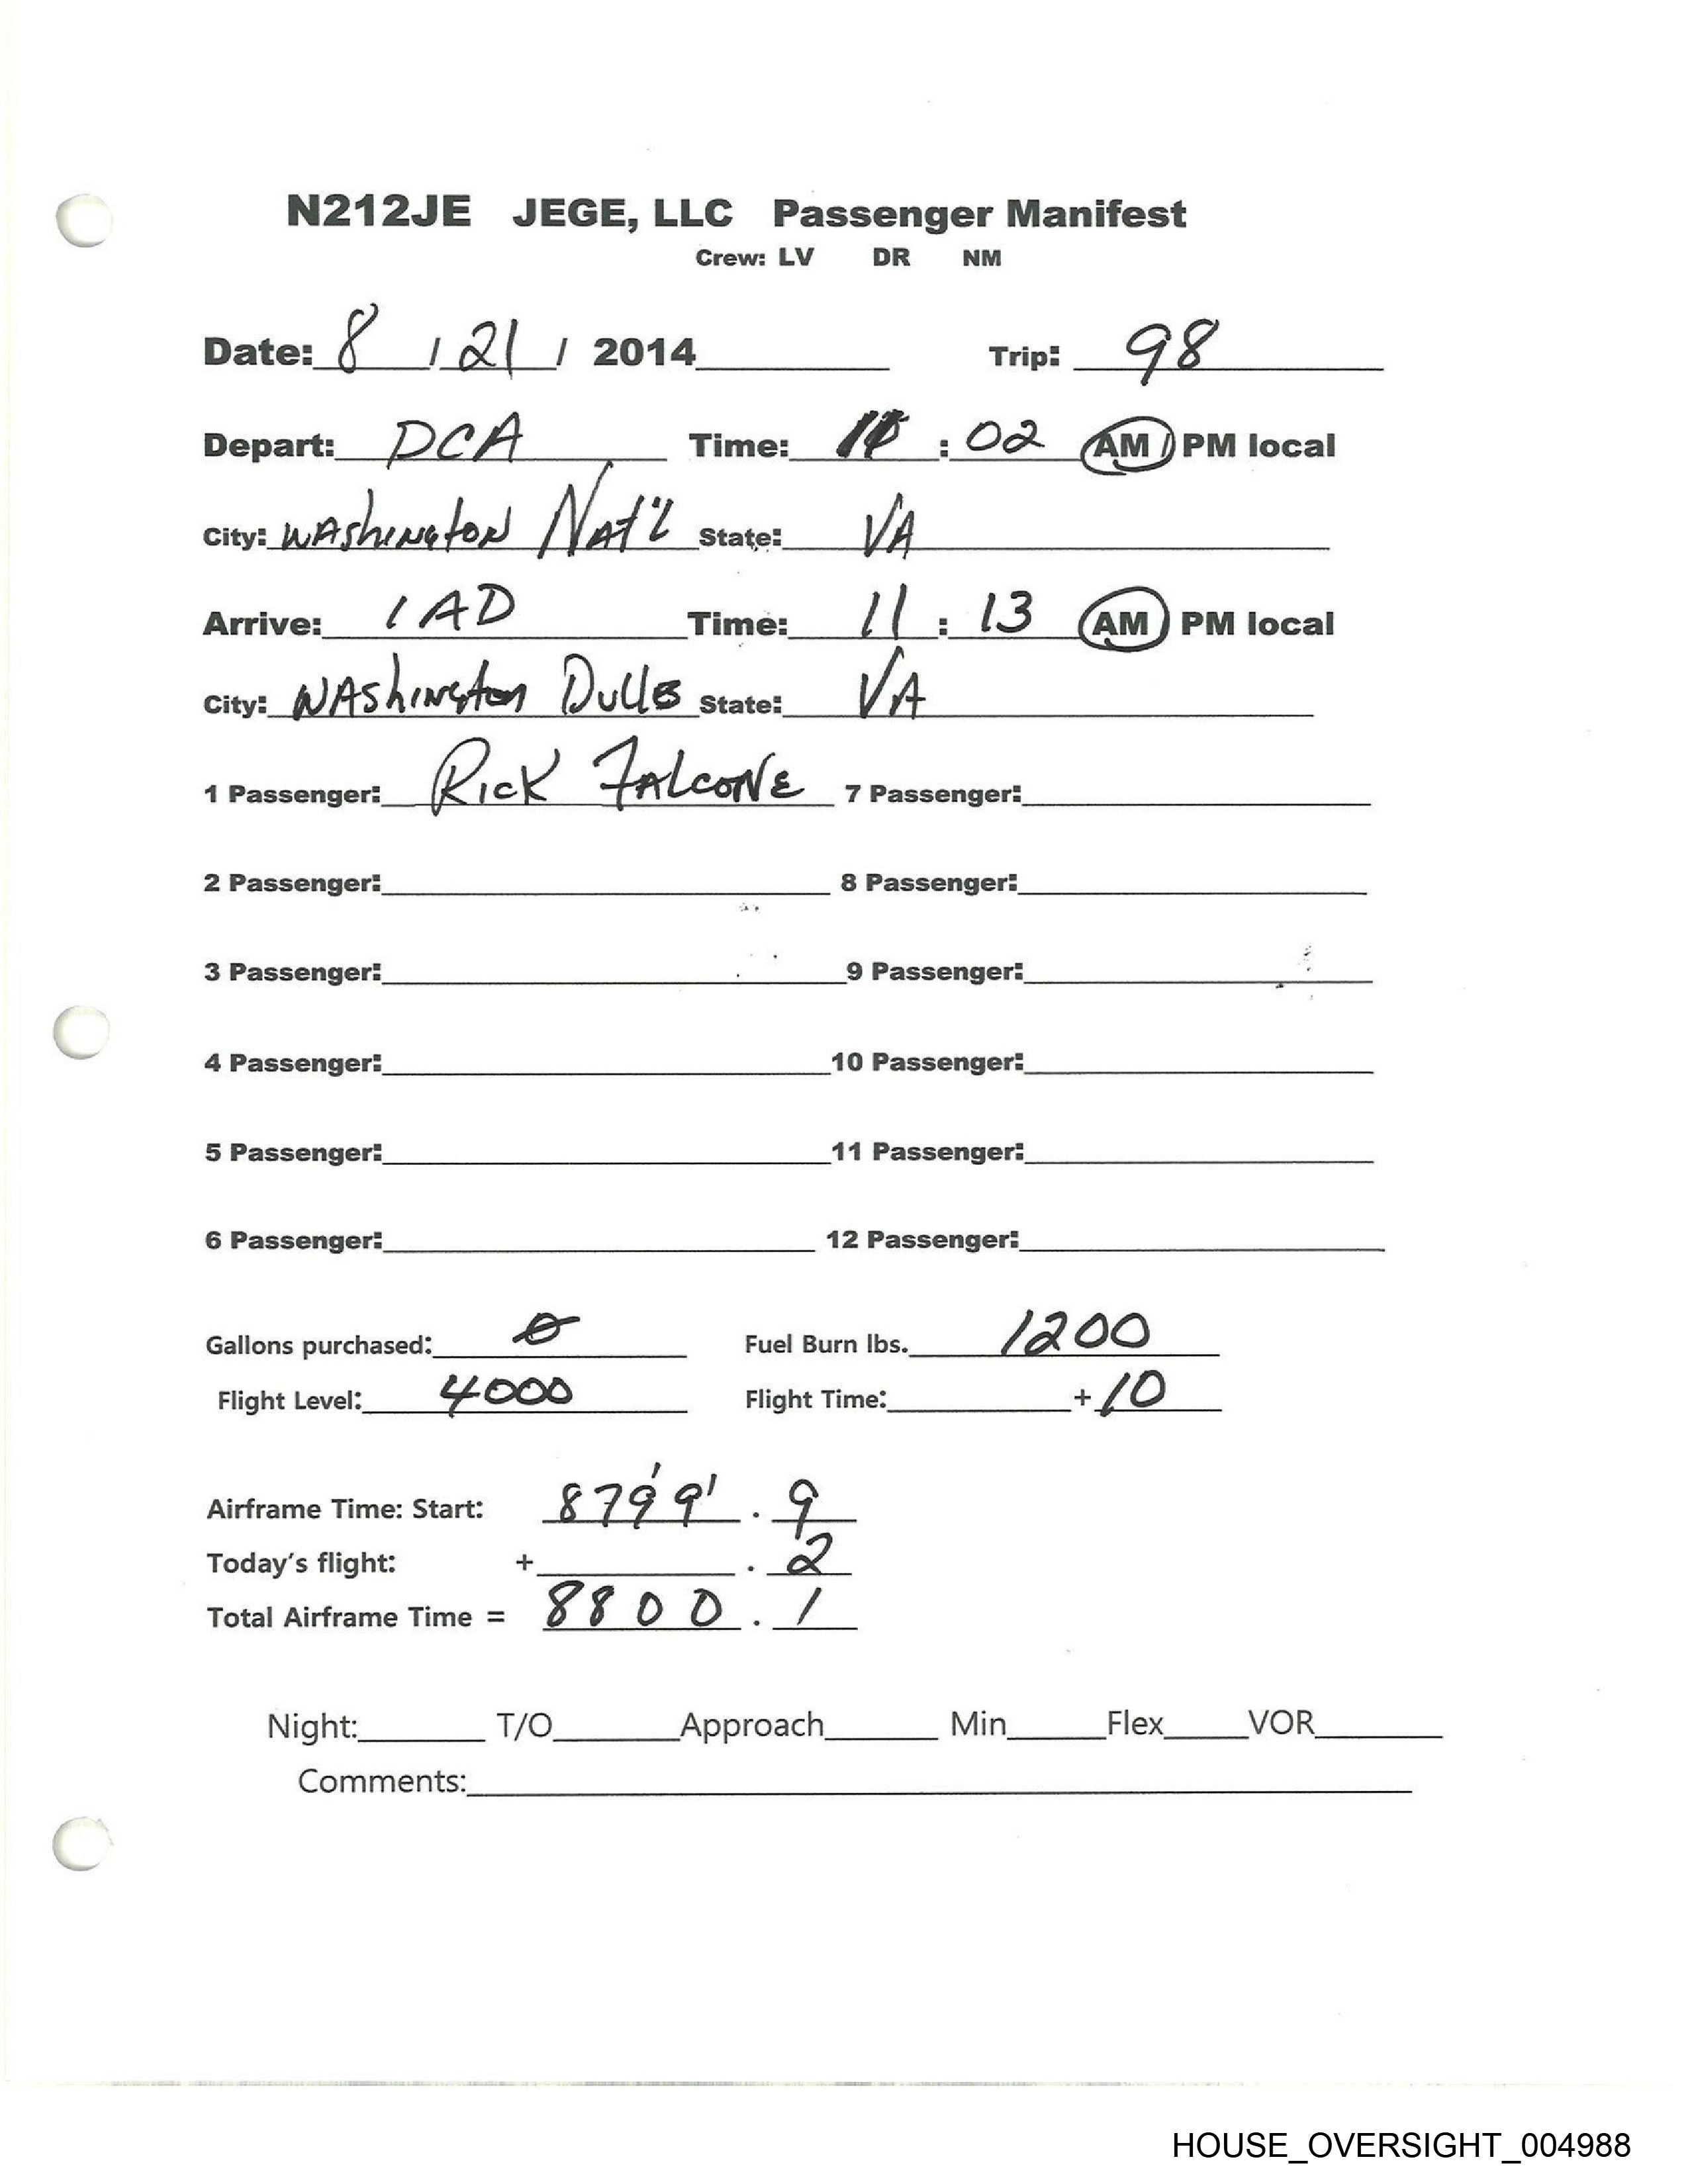 N212JE JEGE, LLC Passenger Manifest
Crew: LV DR NM
Date: 8 / 21 / 2014 Trip: 98
Depart: DCA Time: 11 : 02 AM / PM local
City: WAShINGtON NAt'l State: VA
Arrive: IAD Time: 11 : 13 AM / PM local
City: WAShINGton DullES State: VA
1 Passenger: RicK FALCONE 7 Passenger:
2 Passenger: 8 Passenger:
3 Passenger: 9 Passenger:
4 Passenger: 10 Passenger:
5 Passenger: 11 Passenger:
6 Passenger: 12 Passenger:
Gallons purchased: 0 Fuel Burn lbs. 1200
Flight Level: 4000 Flight Time: + 10
Airframe Time: Start: 8799 . 9
Today's flight: + . 2
Total Airframe Time = 8800 . 1
Night: T/O Approach Min Flex VOR
Comments:
HOUSE_OVERSIGHT_004988